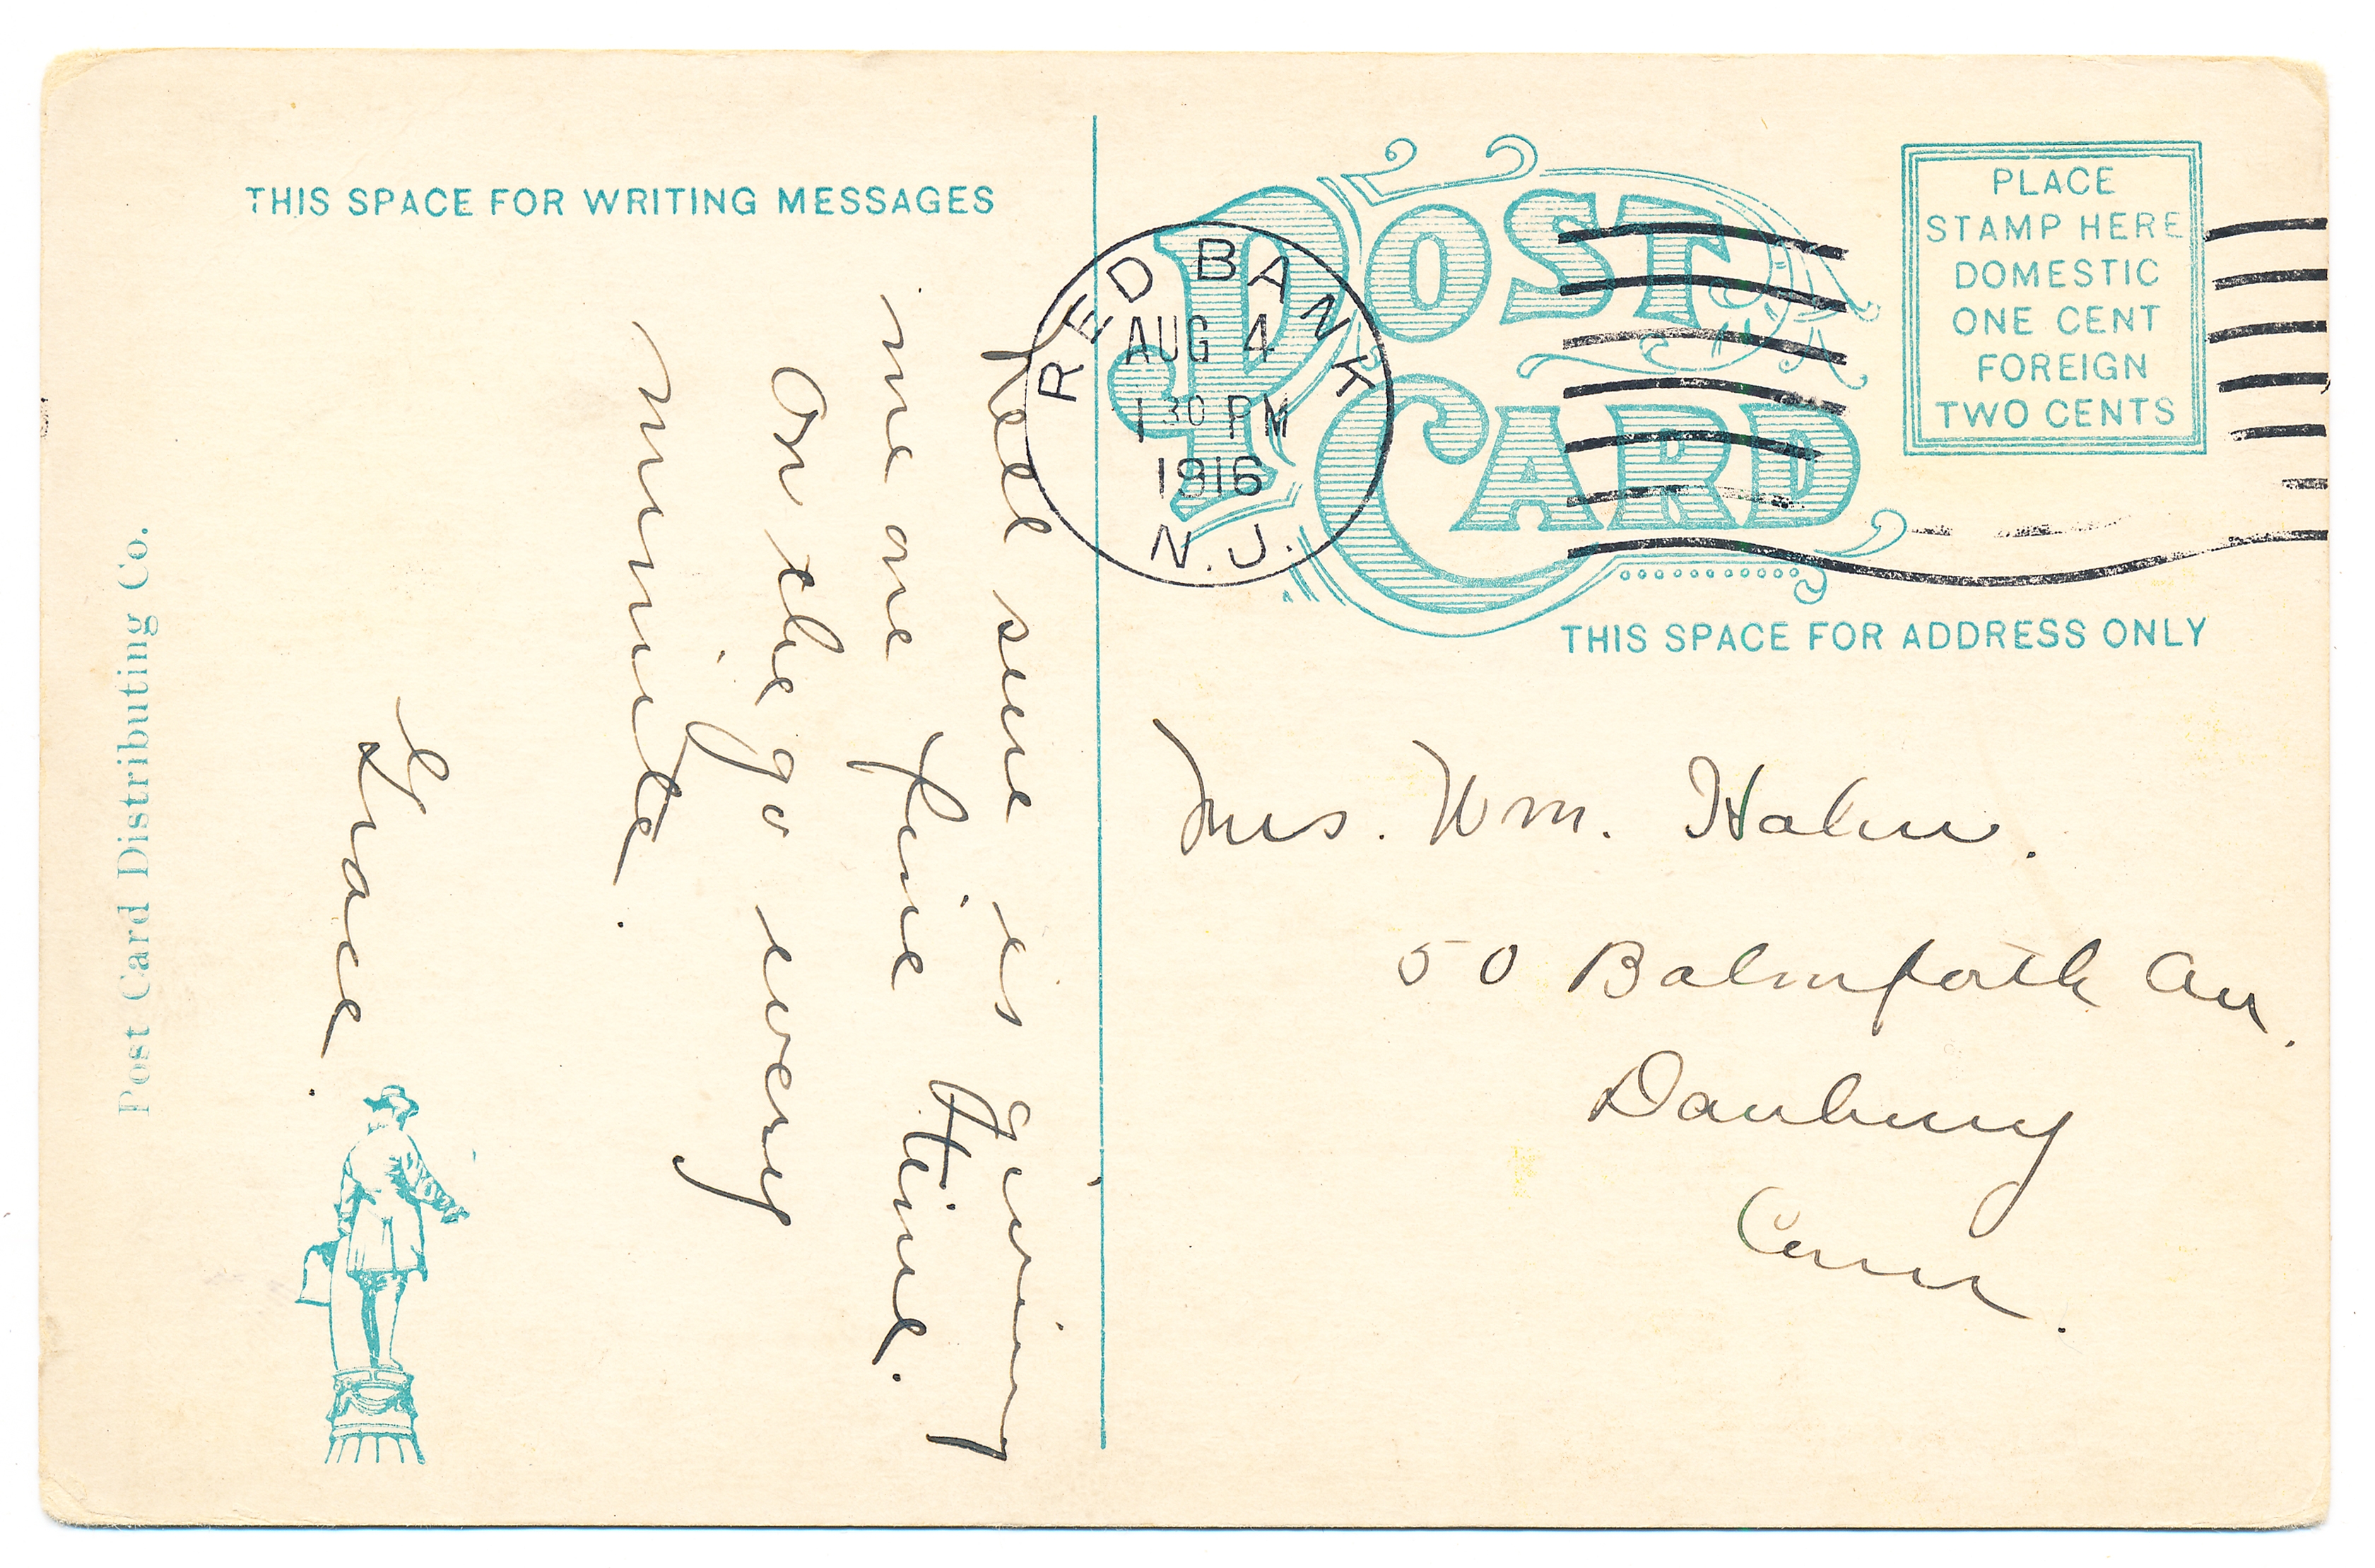 THIS SPACE FOR WRITING MESSAGES
sure is giving
me one fine time.
On the go every
minute.
Grace.
Post Card Distributing Co.
POST
CARD
RED BANK
AUG 4
1 30 PM
1916
N.J.
PLACE
STAMP HERE
DOMESTIC
ONE CENT
FOREIGN
TWO CENTS
THIS SPACE FOR ADDRESS ONLY
Mrs. Wm. Hahn.
50 Balmforth Av.
Danbury
Conn.